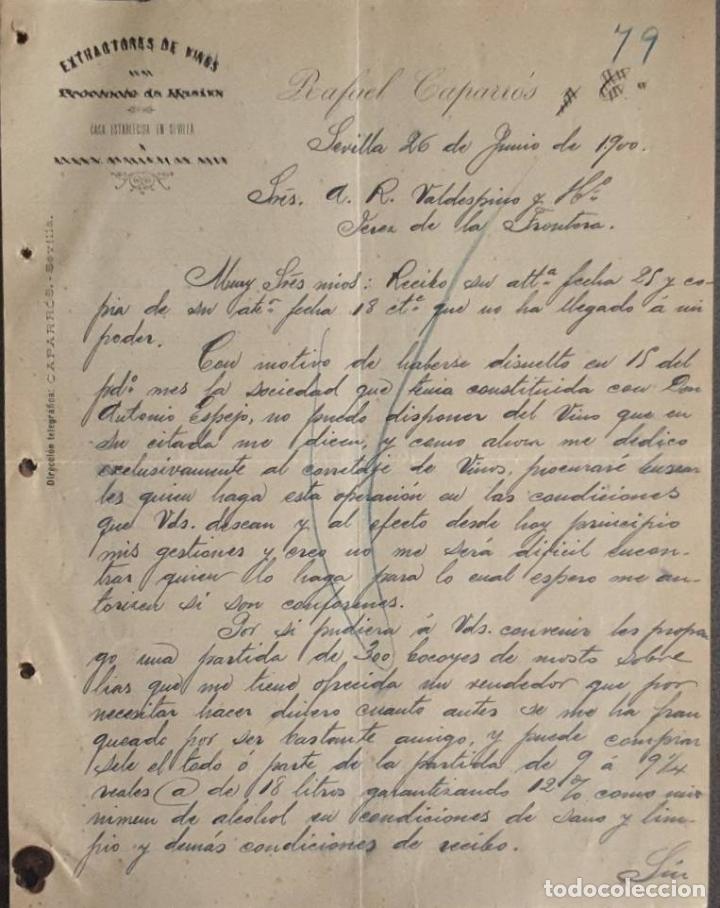 79
EXTRACTORES DE VINOS
CASA ESTABLECIDA EN SEVILLA
Rafael Caparrós
Dirección telegráfica: CAPARRÓS.-Sevilla.
Sevilla 26 de Junio de 1900.
Srés. A. R. Valdespino y Hº
Jerez de la Frontera.
Muy Srés mios: Recibo su attª fecha 25 y co-
pia de su atª fecha 18 ctº que no ha llegado á mi
poder.
Con motivo de haberse disuelto en 15 del
pdº mes la sociedad que tenia constituida con Don
Antonio Espejo, no puedo disponer del Vino que en
su citada me dicen, y como ahora me dedico
exclusivamente al corretaje de Vinos, procuraré buscar
les quien haga esta operación en las condiciones
que Vds. desean y al efecto desde hoy principio
mis gestiones y creo no me será dificil encon-
trar quien lo haga para lo cual espero me au-
toricen si son conformes.
Por si pudiera á Vds. convenir les propon
go una partida de 300 bocoyes de mosto sobre
lias que me tiene ofrecida un vendedor que por
necesitar hacer dinero cuanto antes se me ha fran
queado por ser bastante amigo, y puede comprar
sele el todo ó parte de la partida de 9 á 9¼
reales @ de 18 litros garantizando 12% como mi
nimum de alcohol en condiciones de sano y lim-
pio y demás condiciones de recibo.
Sin
todocoleccion